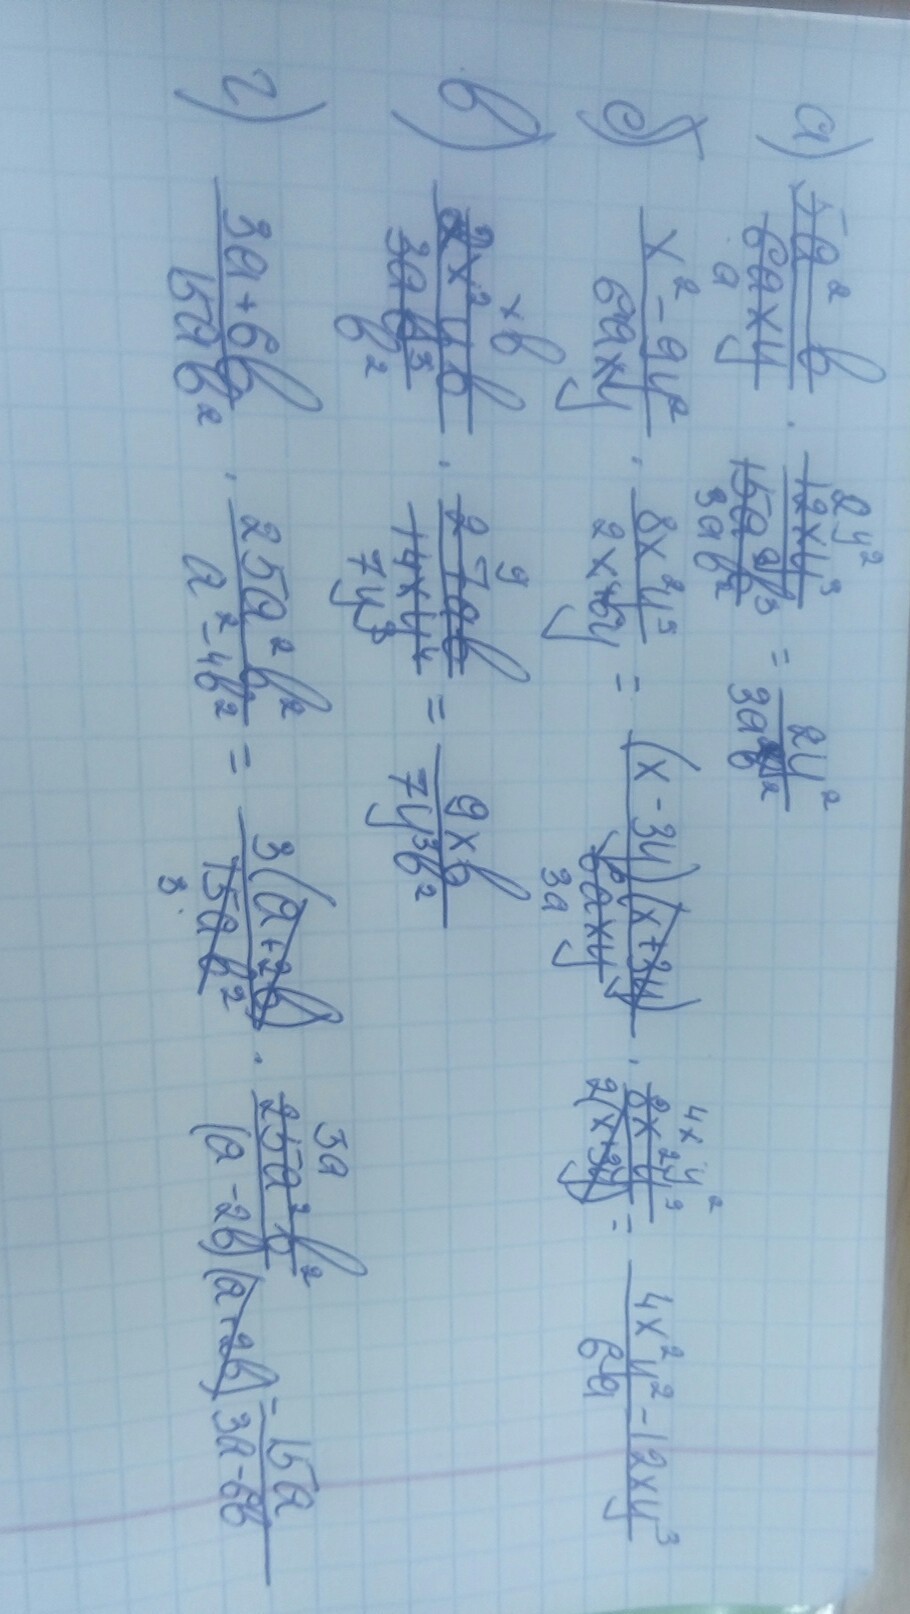 а) 5a²b/6axy · 12xy³/15ab³ = 2y²/3ab²
б) x²-9y²/6axy · 8x²y³/2x+6y = (x-3y)(x+3y)/6axy · 8x²y³/2(x+3y) = 4x²y²-12xy³/6a
в) 2x²yb/3ab³ · 27ab/14xy⁴ = 9xb/7y³b²
г) 3a+6b/15ab² · 25a²b²/a²-4b² = 3(a+2b)/15ab² · 25a²b²/(a-2b)(a+2b) = 15a/3a-6b